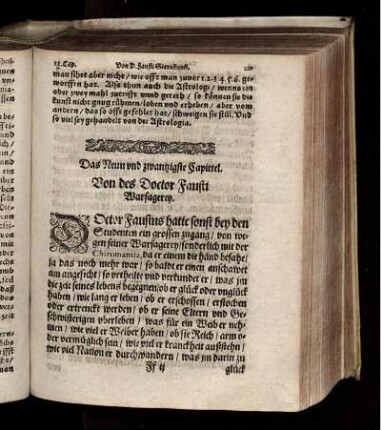 28. Cap. Von D. Fausti Sternkunst.
man sihet aber nicht / wie offt man zuvor 1.2.3.4.5.6. ge-
worffen hat. Also thun auch die Astrologi / wenns ein
oder zwey mahl zutrifft vnnd gereth / so können sie die
kunst nicht gnug rühmen / loben vnd erheben / aber vom
andern / das so offt gefehlet hat / schweigen sie still. Vnd
so viel sey gehandelt von der Astrologia.
Das Neun vnd zwantzigste Capittel.
Von des Doctor Fausti
Warsagerey.
DOctor Faustus hatte sonst bey den
Studenten ein grossen zugang / von we-
gen seiner Warsagerey / sonderlich mit der
Chiromantia, da er einem die händ besahe /
ja das noch mehr war / so baldt er einen anschawet
am angesicht / so vrtheilte vnd verkündet er / was jm
die zeit seines lebens begegnen / ob er glück oder vnglück
haben / wie lang er leben / ob er erschossen / erstochen
oder ertrenckt werden / ob er seine Eltern vnd Ge-
schwistrigen vberleben / was für ein Weib er neh-
men / wie viel er Weiber haben / ob sie Reich / arm o-
der vermüglich sein / wie viel er kranckheit außstehn /
wie viel Nation er durchwandern / was jm darin zu
Ff ij glück